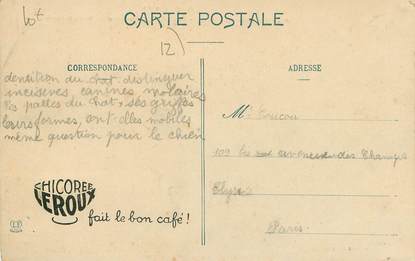 CARTE POSTALE
12)
CORRESPONDANCE
dentition du chat distinguer
incisives, canines, molaires
les pattes du chat, ses griffes
leurs formes, ont elles mobiles
même question pour le chien
CHICORÉE
LEROUX
fait le bon café !
ADRESSE
M. Coucou
109 avenue des Champs
Elysées
Paris